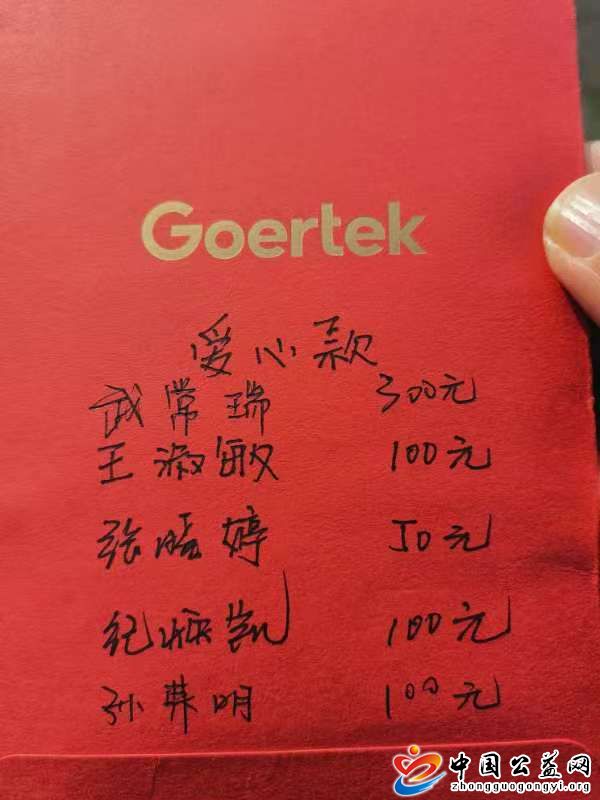 Goertek
爱心款
武常瑞 300元
王淑敏 100元
张晓婷 50元
纪 凯 100元
孙 明 100元
中国公益网
zhongguogongyi.org